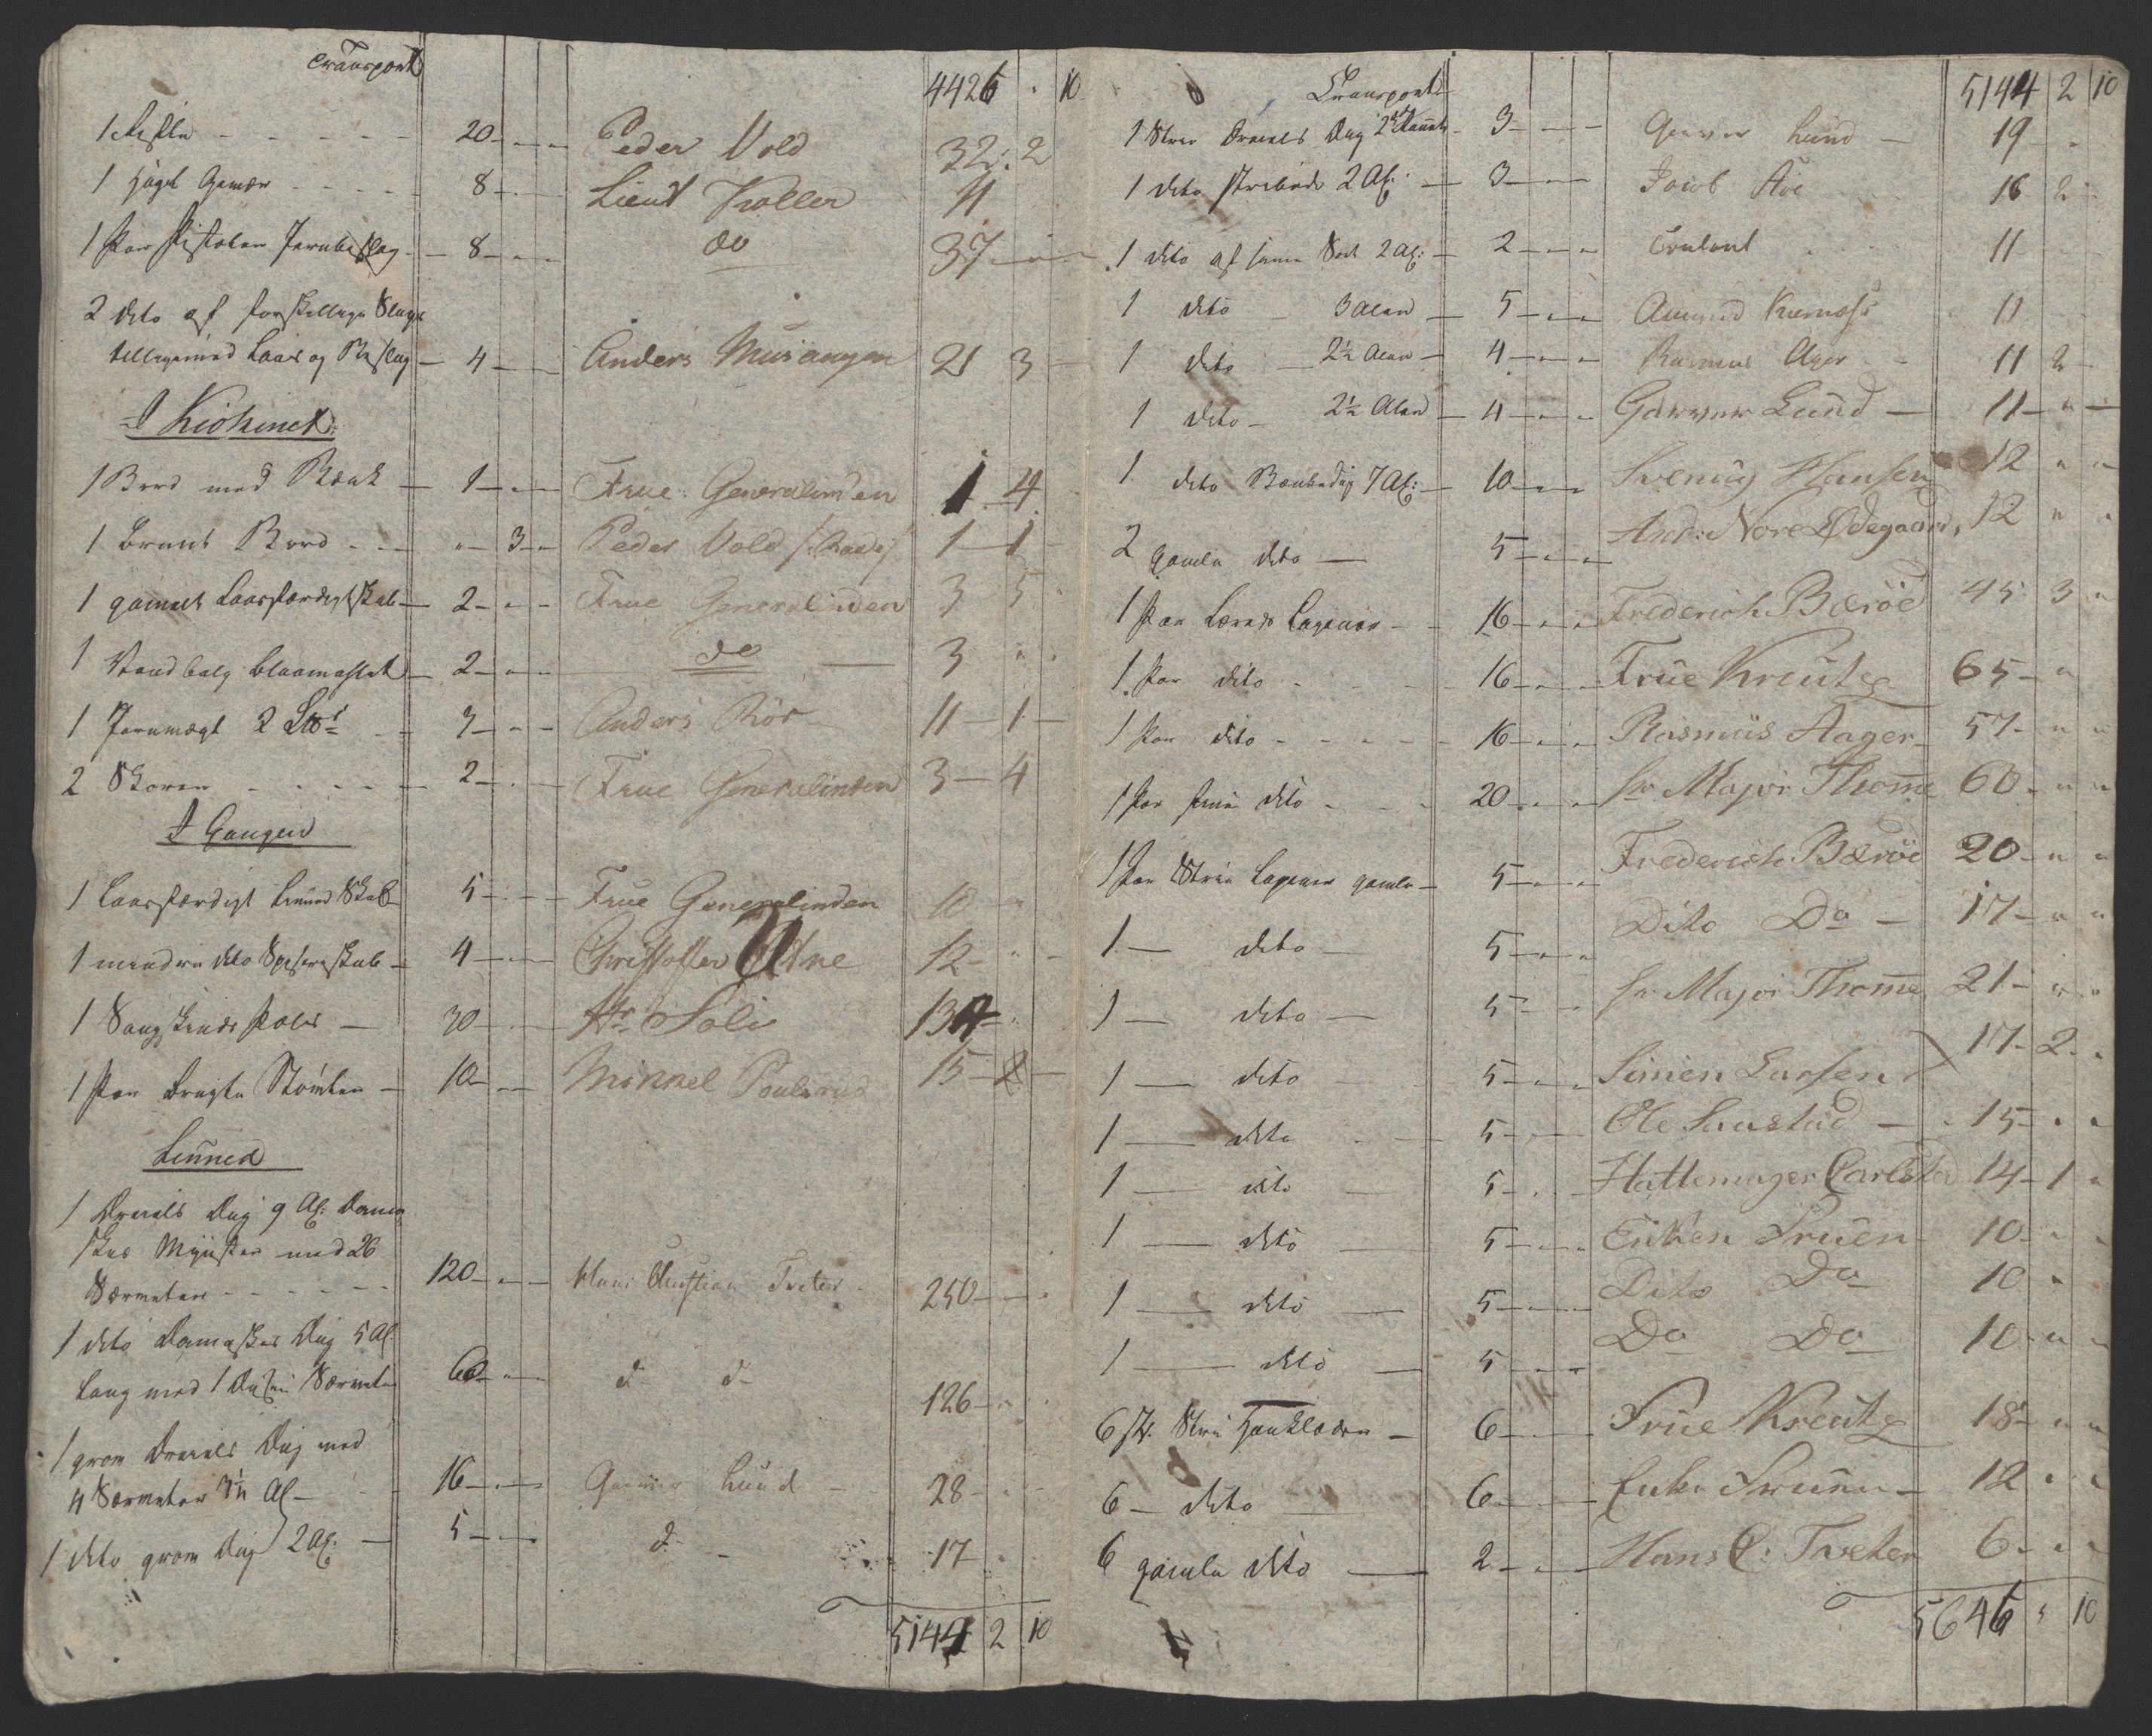 Transport 4426 " 10
1 20 Peder Vold 32 " 2
1 Jagt Gevær 8 Lieut Koller 11
1 Par Pistoler Jernbeslag 8 do 37
2 dito af forskellige Slags
tilligemed Laas og Beslag 4 Anders Musangen 21 3
I Kiökenet
1 Bord med Bænk 1 Frue Generalinden 1 4
1 brunt Bord " 3 Peder Vold 1 1
1 gammelt Laasfærdigt Skab 2 Frue Generalinden 3 5
1 Vandbalg blaamalet 2 do 3 "
1 Jernvægt 2 3 Anders Röe 11 1
2 2 Frue Generalinden 3 4
I Gangen
1 Laasfærdigt Linned Skab 5 Frue Generalinden 10 "
1 mindre dito Spiseskab 4 Christoffer 12 "
1 30 Hr Soli 134
1 Par brugte Stövler 10 Mikkel Poulsrud 15 2
Linned
1 Dreiels Dug 9 Al: Dama
skes Mynster med 26
Servietter 120 Hans Christian Tveter 250
1 dito Damaskes Dug 5 Al
lang med 1 Dusin Servietter 60 d d 126
1 grov Dreiels Dug med
4 Servietter 3½ Al 16 Gunner Lund 28
1 dito grov Dug 2 Al: 5 d 17
5144 2 10
Transport 5144 2 10
1 Dreiels Dug 3 Gunner Lund 19
1 dito 2 Al: 3 Jacob 16 2
1 dito af samme Sort 2 Al: 2 11
1 dito 3 Alen 5 11
1 dito 2½ Alen 4 Rasmus Ager 11 2
1 dito 2½ Alen 4 Gunner Lund 11 "
1 dito 7 Al: 10 Svenug Hansen 12 " "
2 gamle dito 5 And: Nore Ödegaard 12 " "
1 Par Lærreds Lagener 16 Frederich Bæröe 45 3 "
1 Par dito 16 Frue Kreutz 65 "
1 Par dito 16 Rasmus Aager 57 " "
1 Par fine dito 20 Hr Major Thome 60 " "
1 Par Strie Lagener gamle 5 Frederich Bæröe 20 " "
1 dito 5 Dito Do 17 " "
1 dito 5 Hr Major Thome 21 " "
1 dito 5 Simen Larsen 17 2 "
1 dito 5 Ole 15 " "
1 dito 5 Hattemager 14 1 "
1 dito 5 Enken Fruen 10 " "
1 dito 5 Dito Do 10 "
1 dito 5 Do Do 10 " "
6 st. Strie Haandklæder 6 Frue Kreutz 18 " "
6 dito 6 12 " "
6 gamle dito 2 Hans C: Tveter 6 " "
5646 5 10